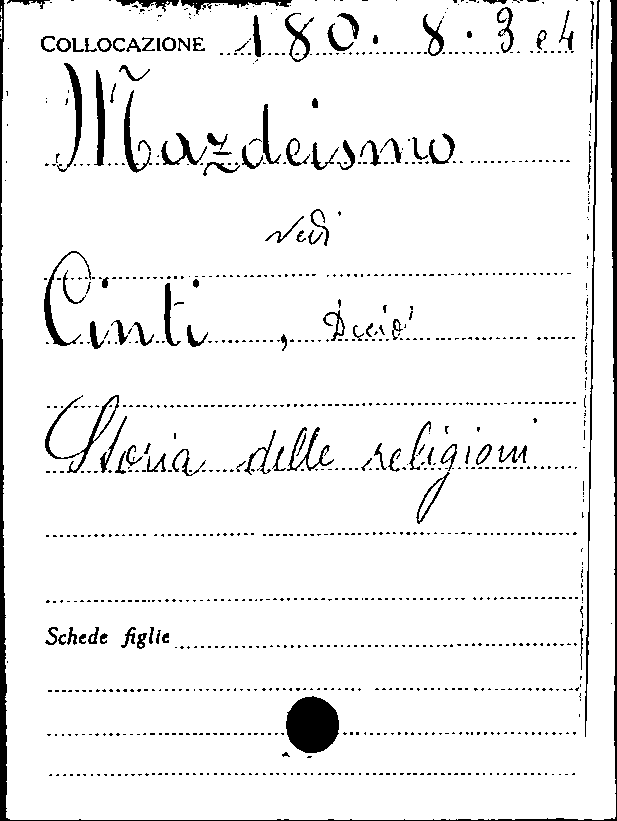 COLLOCAZIONE 180. 8. 3 e 4
Mazdeismo
vedi
Cinti, Decio
Storia delle religioni
Schede figlie